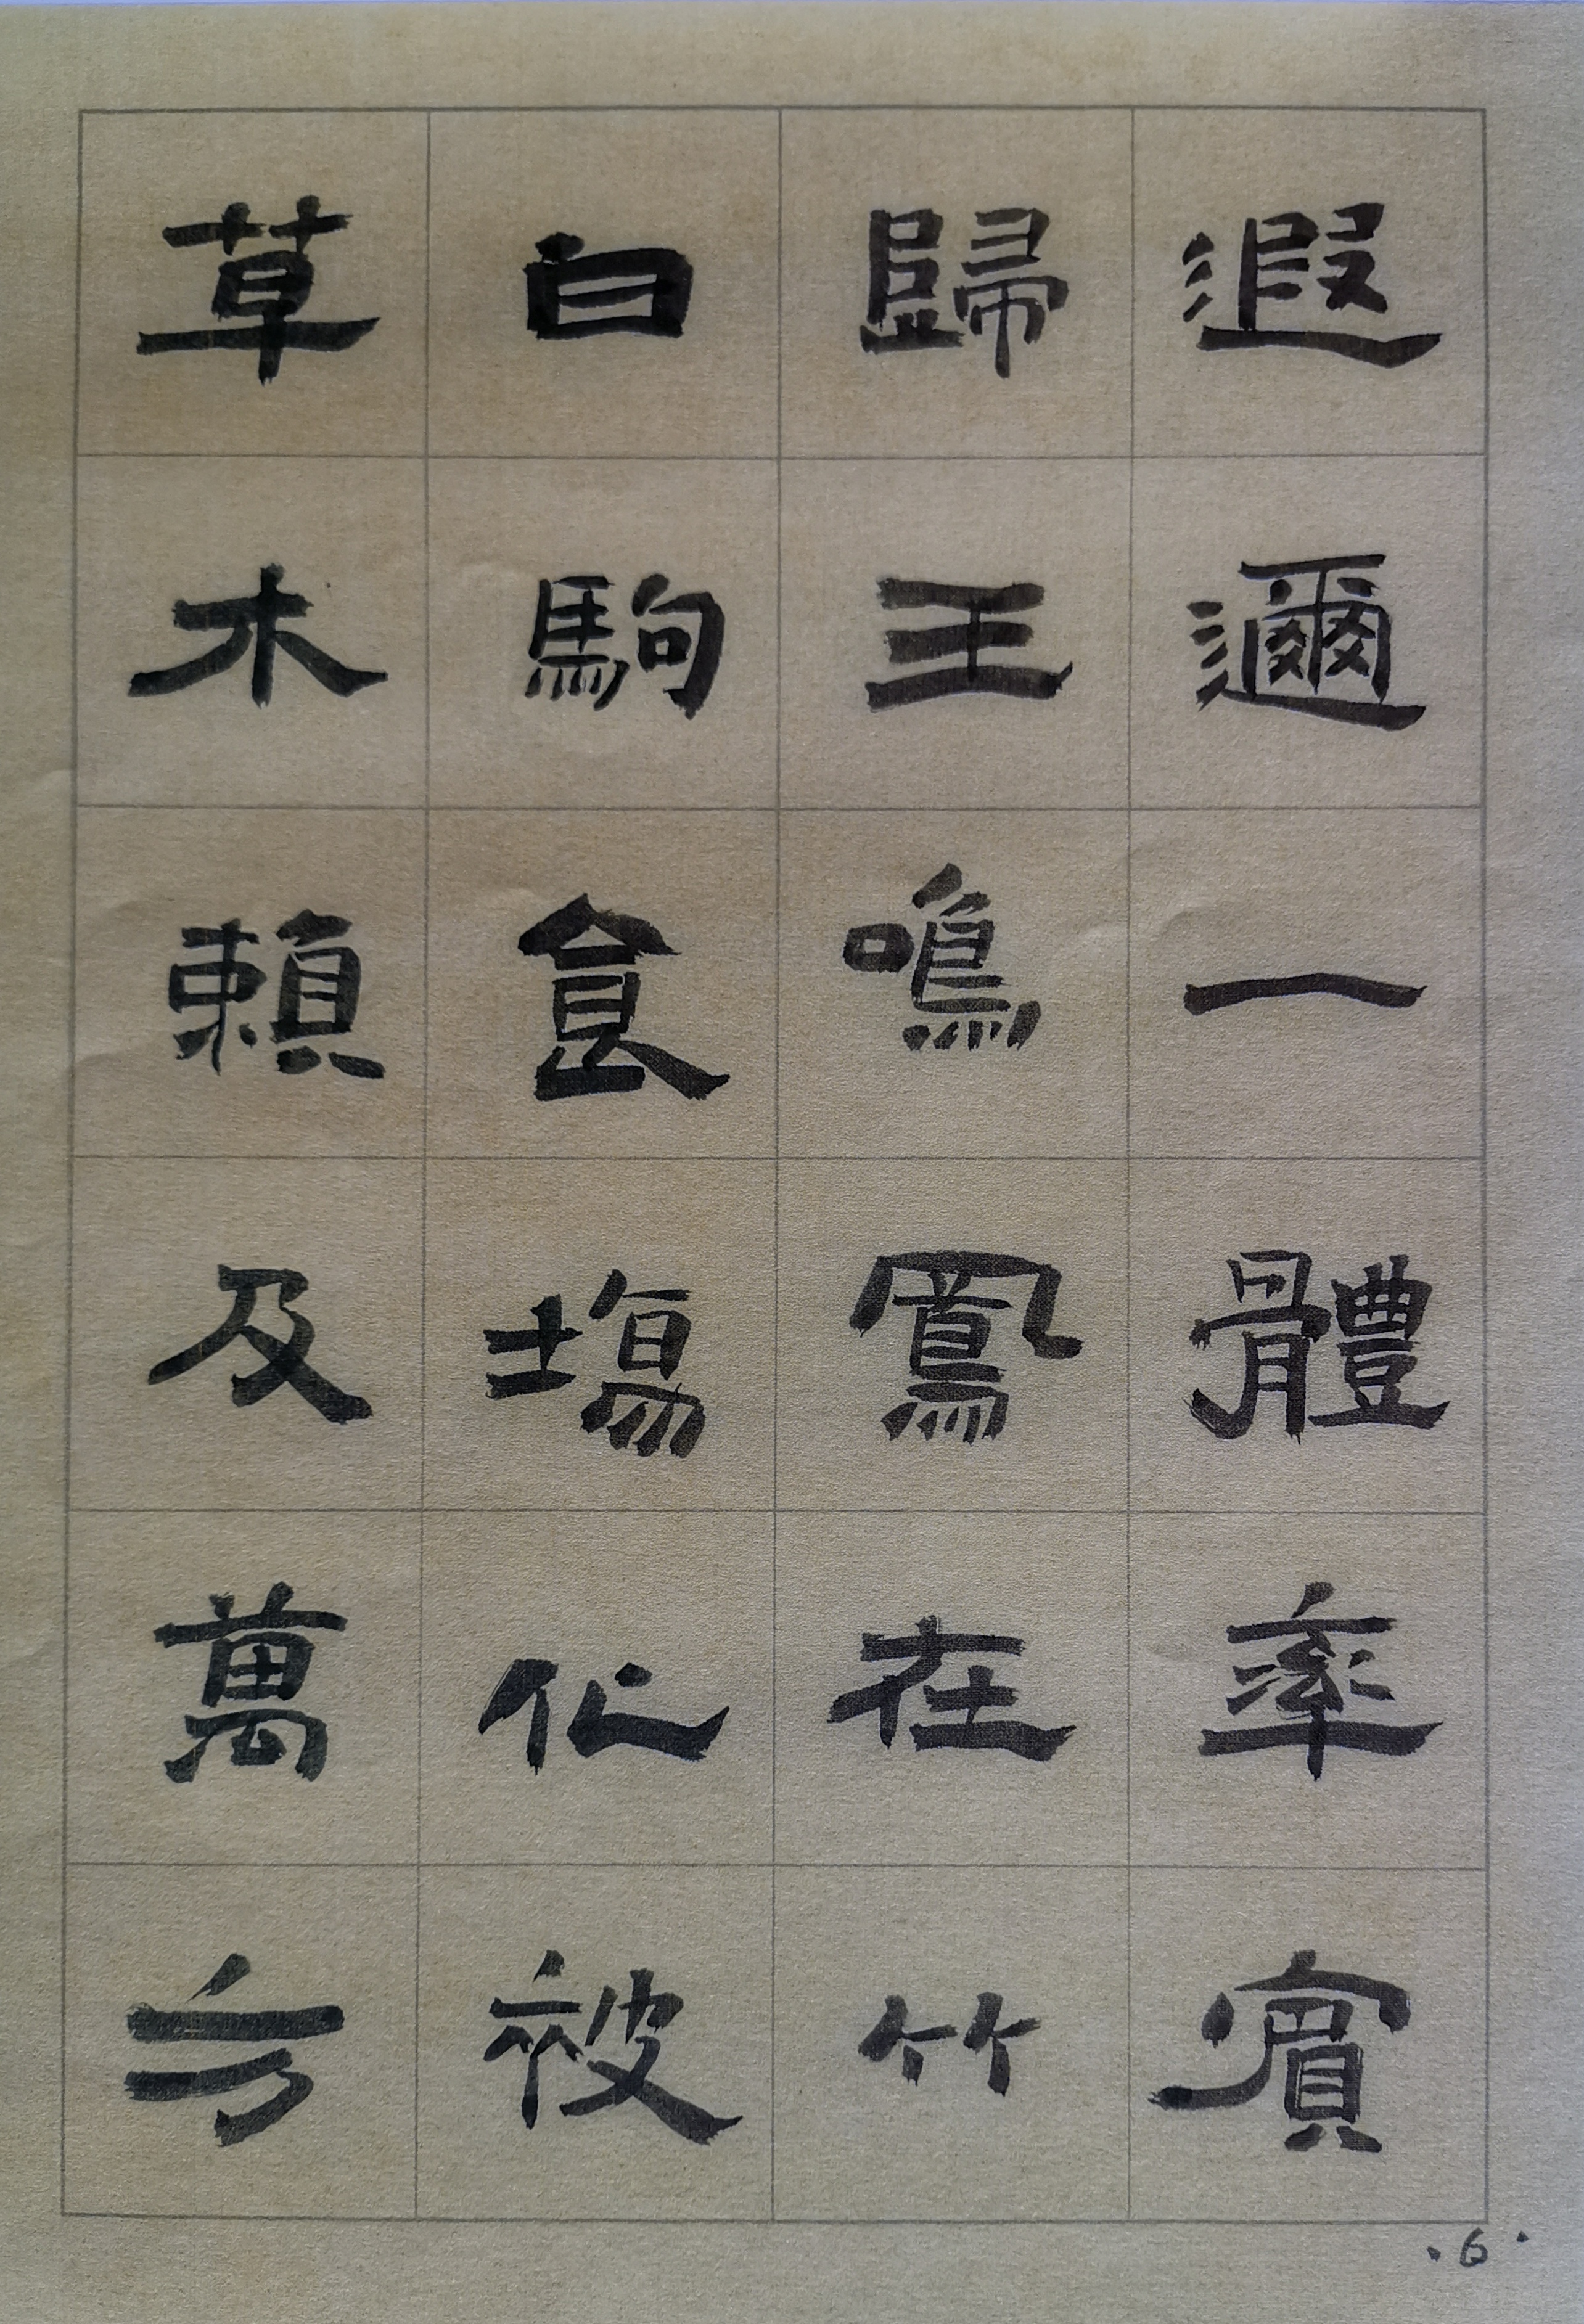 遐邇一體率賓
歸王鳴鳳在竹
白駒食場化被
草木賴及萬方
·6·